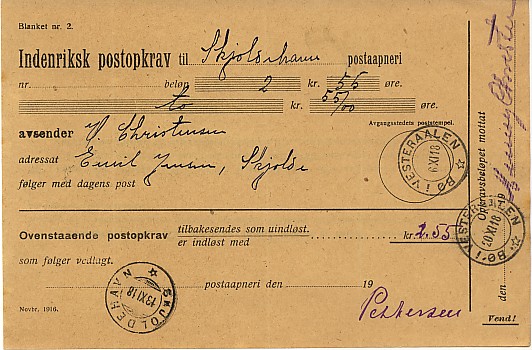 Blanket nr. 2.
Indenriksk postopkrav til Skjoldehavn postaapneri
nr. beløp 2 kr. 55 øre.
to kr. 55/00 øre.
Avgangsstedets poststempel.
avsender V. Christensen
adressat Emil Jensen, Skjolde
følger med dagens post
BØ I VESTERAALEN
6 XI 18
Ovenstaaende postopkrav tilbakesendes som uindløst.
er indløst med kr. 2.55
som følger vedlagt.
postaapneri den 19
SKJOLDEHAVN
13 XI 18
Pettersen
Novbr. 1916.
Vend!
Opkravsbeløpet mottat
den 19
BØ I VESTERAALEN
20 XI 18